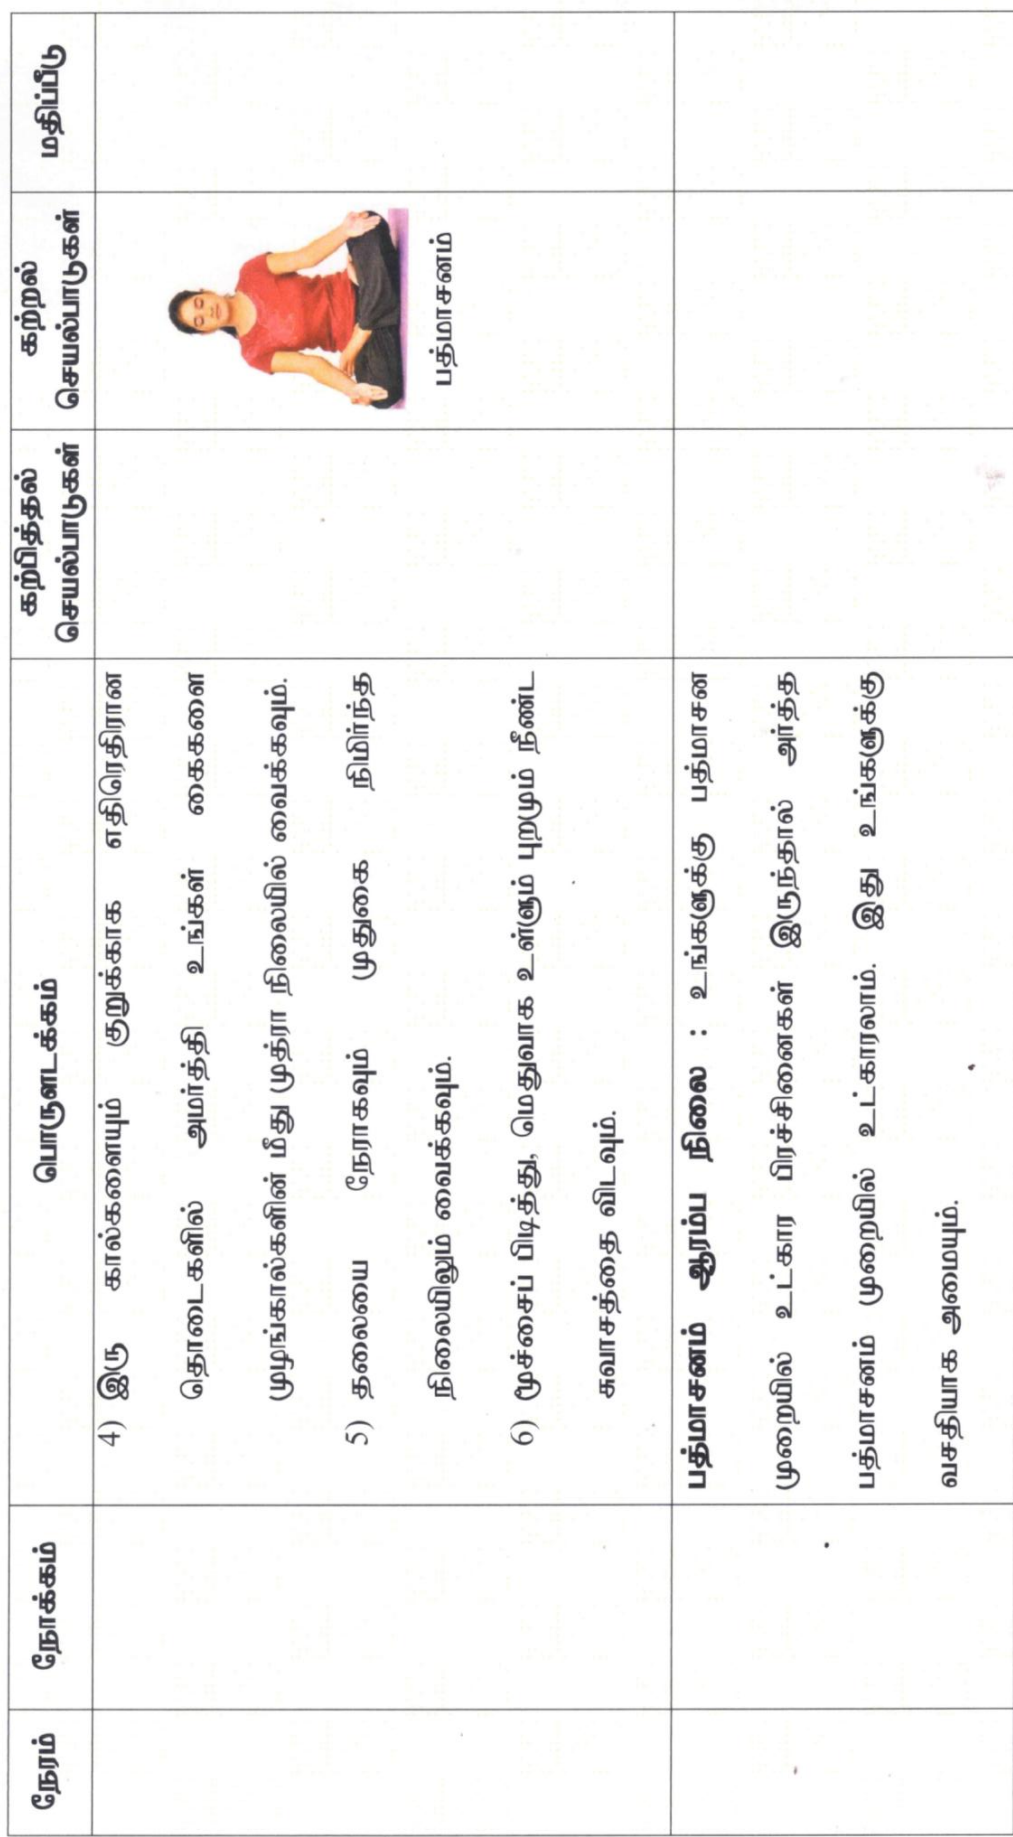 நேரம்
நோக்கம்
பொருளடக்கம்
கற்பித்தல்
செயல்பாடுகள்
கற்றல்
செயல்பாடுகள்
மதிப்பீடு
4) இரு கால்களையும் குறுக்காக எதிரெதிரான
தொடைகளில் அமர்த்தி உங்கள் கைகளை
முழங்கால்களின் மீது முத்ரா நிலையில் வைக்கவும்.
5) தலையை நேராகவும் முதுகை நிமிர்ந்த
நிலையிலும் வைக்கவும்.
6) மூச்சைப் பிடித்து, மெதுவாக உள்ளும் புறமும் நீண்ட
சுவாசத்தை விடவும்.
பத்மாசனம்
பத்மாசனம் ஆரம்ப நிலை : உங்களுக்கு பத்மாசன
முறையில் உட்கார பிரச்சினைகள் இருந்தால் அர்த்த
பத்மாசனம் முறையில் உட்காரலாம். இது உங்களுக்கு
வசதியாக அமையும்.